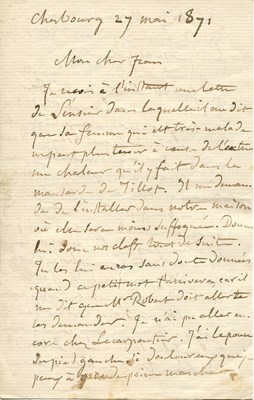 Cherbourg 27 mai 1871
Mon cher Jean
Je reçois à l'instant une lettre
de Sensier dans laquelle il me dit
que sa femme qui est très malade
ne peut plus tenir à cause de l'extrê
me chaleur qu'il y fait dans la
mansard de Tillot. Il me deman
de de l'installer dans notre maison
où elle sera moins suffoquée. Donne
lui donc nos clefs tout de suite.
Tu les lui auras sans doute données
quand ce petit mot t'arrivera car il
me dit que Mr Robert doit aller te
les demander. Je n'ai pu aller en
core chez Lecarpentier. J'ai le pouce
du pied gauche si douloureux que je
peux à grande peine marcher